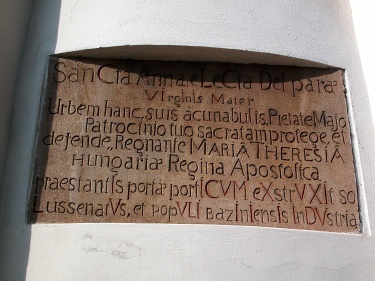 SanCta Anna eLeCta DeIparæ
VIrgInIs Mater
Urbem hanc, suis acunabulis, Pietate Majo
Patrocinio tuo sacratam protege, et
defende, Regnante MARIA THERESIA
Hungariæ Regina Apostolica
praestantis portæ portICVM eXstrVXIt so
Lussenatvs, et popVLI BazInIensIs InDVstria